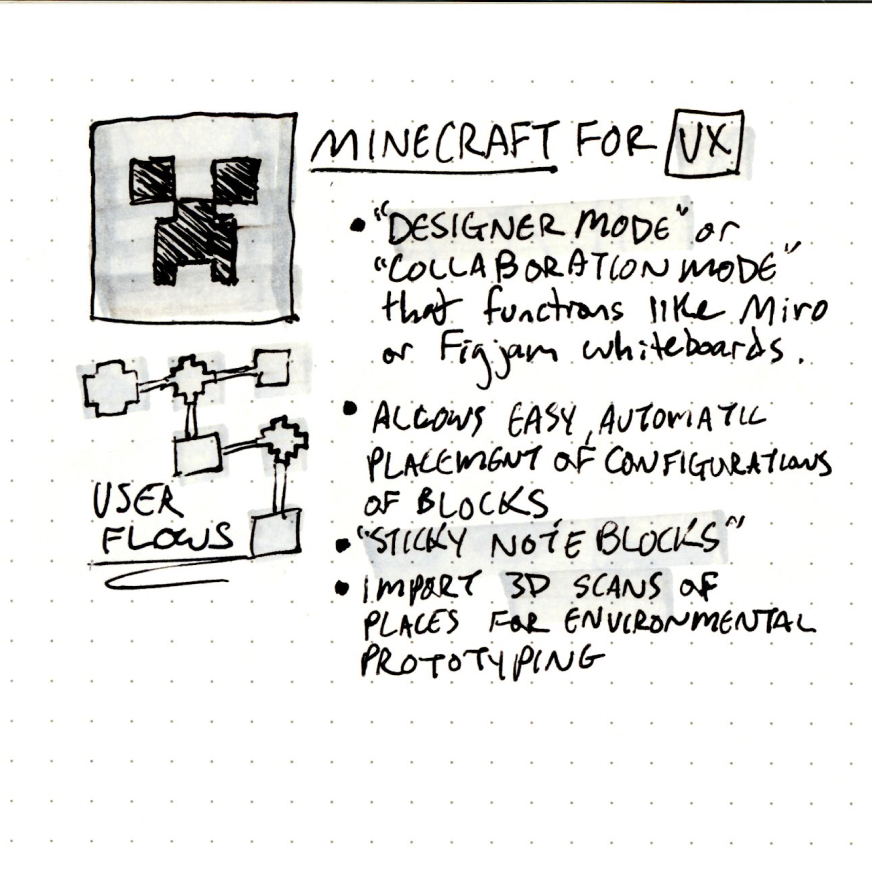 MINECRAFT FOR UX
• "DESIGNER MODE" or
"COLLABORATION MODE"
that functions like Miro
or Figjam whiteboards.
• ALLOWS EASY, AUTOMATIC
PLACEMENT OF CONFIGURATIONS
OF BLOCKS
• "STICKY NOTE BLOCKS"
• IMPORT 3D SCANS OF
PLACES FOR ENVIRONMENTAL
PROTOTYPING
USER
FLOWS